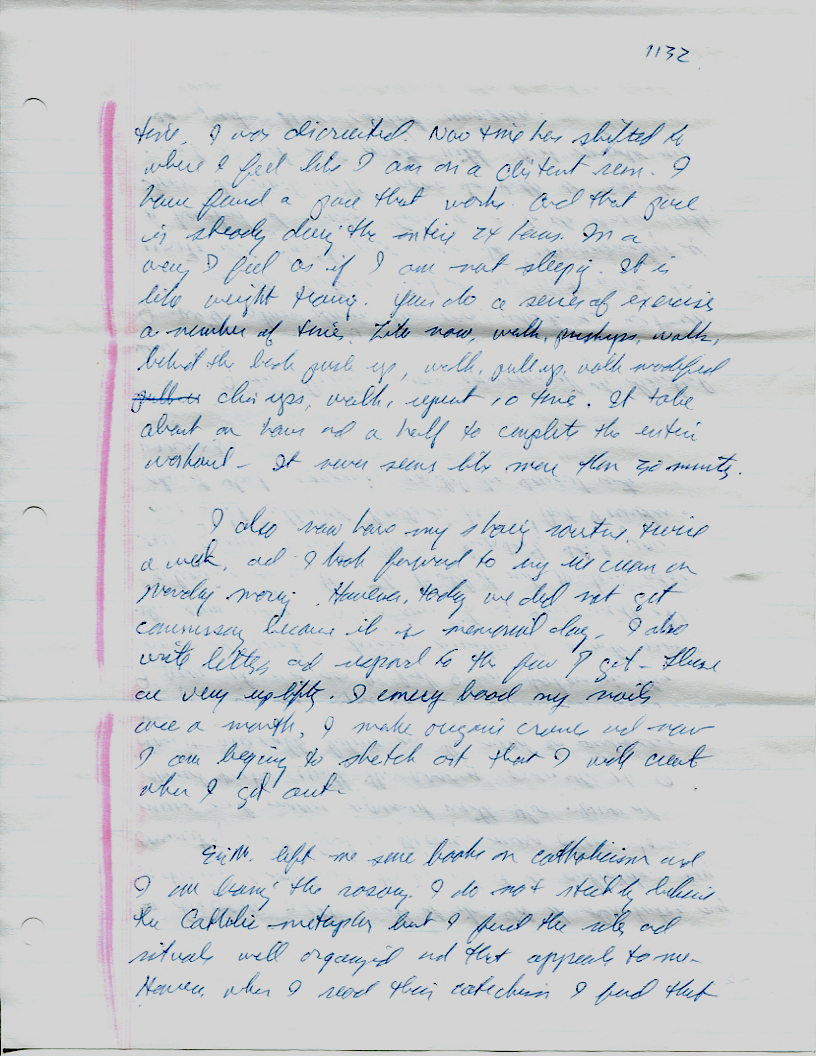 1132
time, I was disoriented. Now time has shifted to
where I feel like I am on a distant run. I
have found a pace that works. And that pace
is steady during the entire 24 hours. In a
way I feel as if I am not sleeping. It is
like weight training. You do a series of exercises
a number of times. Like now, walk, pushups, walk,
behind the back push ups, walk, pull up, walk modified
pull u chin ups, walk, repeat 10 time. It take
about an hour ad a half to complete the entire
workout - It never seems like more than 20 minutes.
I also now have my shaving routine, twice
a week, ad I look forward to my ice cream on
Monday morning. However, today we did not get
commissary because it is memorial day. I also
write letters ad respond to the few I get - these
are very uplifting. I emery board my nails
once a month, I make origami cranes and now
I am beging to sketch art that I will creat
when I get out.
left me some books on catholicism and
I am learning the rosary. I do not strictly believe
the Catholic metaphor but I find the rites ad
rituals well organized and that appeals to me -
However, when I read this catechism I find that